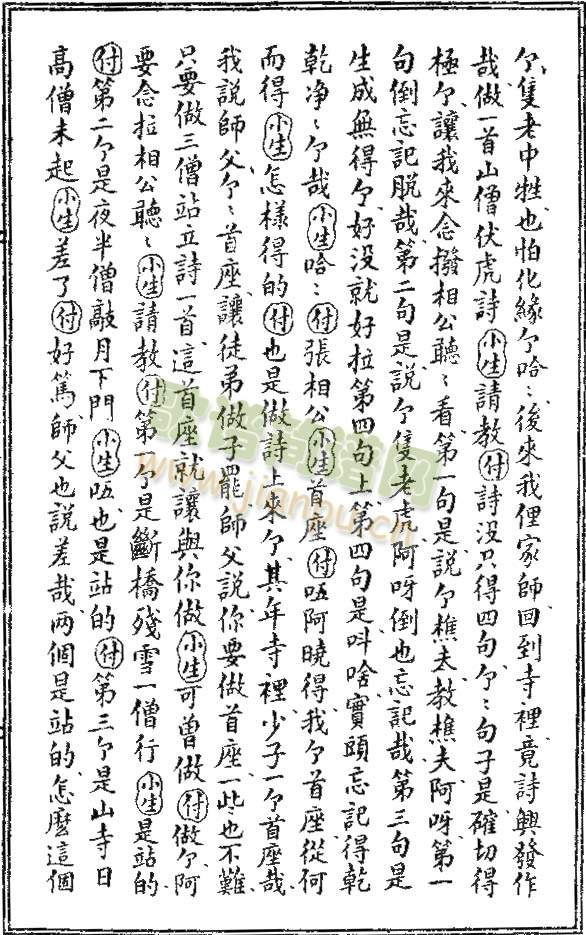 个隻老中牲也怕化緣个哈〻後來我俚家師回到寺裡竟詩興發作
哉做一首山僧伏虎詩小生請教付詩没只得四句个〻句子是確切得
極个讓我來念撥相公聽〻看第一句是説个樵夫教樵夫阿呀第一
句倒忘記脱哉第二句是説个隻老虎阿呀倒也忘記哉第三句是
生成無得个好没就好拉第四句上第四句是呌啥實頭忘記得乾
乾净〻个哉小生哈〻付張相公小生首座付唔阿曉得我个首座從何
而得小生怎樣得的付也是做詩上來个其年寺裡少子一个首座哉
我説師父个〻首座讓徒弟做子罷師父説你要做首座一些也不難
只要做三僧站立詩一首這首座就讓與你做小生可曾做付做个阿
要念拉相公聽〻小生請教付第一个是斷橋殘雪一僧行小生是站的
付第二个是夜半僧敲月下門小生唔也是站的付第三个是山寺日
高僧未起小生差了付好篤師父也説差哉两個是站的怎麽這個
歌谱简谱网
www.jianpu.cn